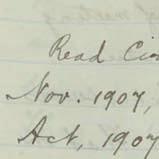 Read Cir
Nov. 1907,
Act, 1907